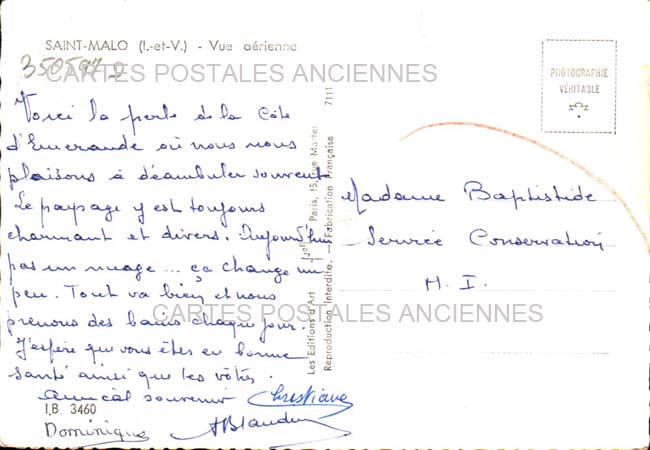 SAINT-MALO (I.-et-V.) - Vue aérienne
CARTES POSTALES ANCIENNES
Voici la perle de la Côte
d'Emeraude où nous nous
plaisons à déambuler souvent
Le paysage y est toujours
charmant et divers. Aujourd'hui
pas un nuage ... ça change un
peu. Tout va bien et nous
prenons des bains chaque jour.
J'espère que vous êtes en bonne
santé ainsi que les vôtres.
Amical souvenir Christiane
I.B 3460
Dominique
Les Editions d'Art Paris, 15, Rue Martel
Reproduction Interdite. - Fabrication Française 7111
PHOTOGRAPHIE
VÉRITABLE
Madame Baptistide
Service Conservation
H. I.
CARTES POSTALES ANCIENNES